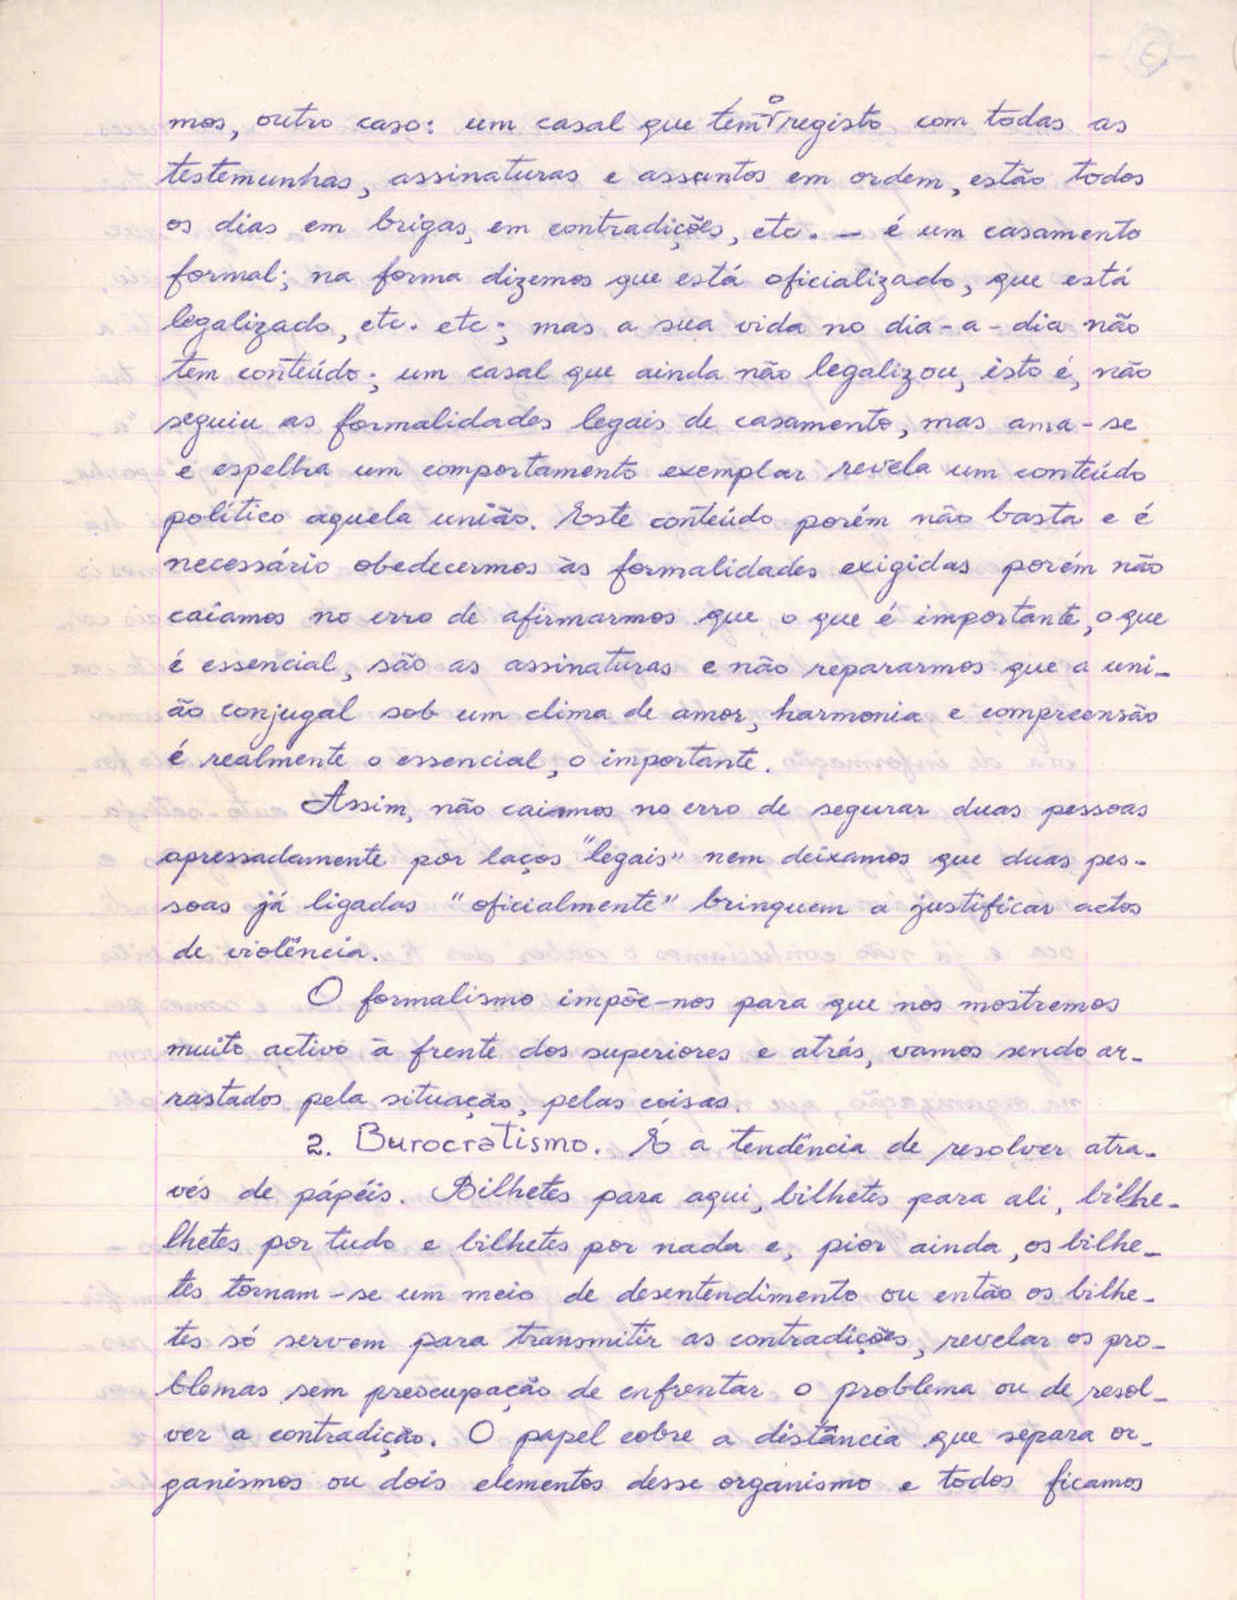 mos, outro caso: um casal que tem o registo com todas as
testemunhas, assinaturas e assuntos em ordem, estão todos
os dias em brigas, em contradições, etc. — é um casamento
formal; na forma dizemos que está oficializado, que está
legalizado, etc. etc; mas a sua vida no dia-a-dia não
tem conteúdo; um casal que ainda não legalizou, isto é, não
seguiu as formalidades legais de casamento, mas ama-se
e espelha um comportamento exemplar revela um conteúdo
político aquela união. Este conteúdo porém não basta e é
necessário obedecermos às formalidades exigidas porém não
caiamos no erro de afirmarmos que o que é importante, o que
é essencial, são as assinaturas e não repararmos que a uni-
ão conjugal sob um clima de amor, harmonia e compreensão
é realmente o essencial, o importante.
Assim, não caiamos no erro de segurar duas pessoas
apressadamente por laços "legais" nem deixamos que duas pes-
soas já ligadas "oficialmente" brinquem a justificar actos
de violência.
O formalismo impõe-nos para que nos mostremos
muito activo à frente dos superiores e atrás, vamos sendo ar-
rastados pela situação, pelas coisas.
2. Burocratismo. É a tendência de resolver atra-
vés de pápéis. Bilhetes para aqui, bilhetes para ali, bilhe-
lhetes por tudo e bilhetes por nada e, pior ainda, os bilhe-
tes tornam-se um meio de desentendimento ou então os bilhe-
tes só servem para transmitir as contradições, revelar os pro-
blemas sem preocupação de enfrentar o problema ou de resol-
ver a contradição. O papel cobre a distância que separa or-
ganismos ou dois elementos desse organismo e todos ficamos